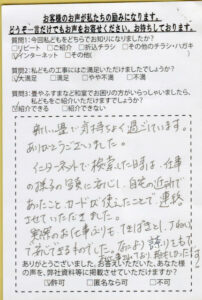 お客様のお声が私たちの励みになります。
どうぞ一言だけでもお声をお寄せください。お待ちしております。
質問1:今回私どもをどちらでお知りになりましたか?
□リピート □ご紹介 □折込チラシ □その他のチラシ・ハガキ
☑インターネット □その他(
質問2:私どもの工事にはご満足いただけましたでしょうか?
☑大満足 □満足 □やや不満 □不満
質問3:畳やふすまなど和室でお困りの方がいらっしゃいましたら、
私どもをご紹介いただけますでしょうか?
☑紹介できる □紹介できない
新しい畳で気持ちよく過ごしています。
ありがとうございました。
インターネットで検索した時に、仕事
の様子の写真に、自宅の近所で
あったこと、カードが使えたことで連絡
させていただきました。
実際のお仕事ぶりも
ありがとうございました。お答えいただいた、あなた様
の声を、弊社資料等に掲載させていただけますか?
☑許可 □匿名なら可 □不可